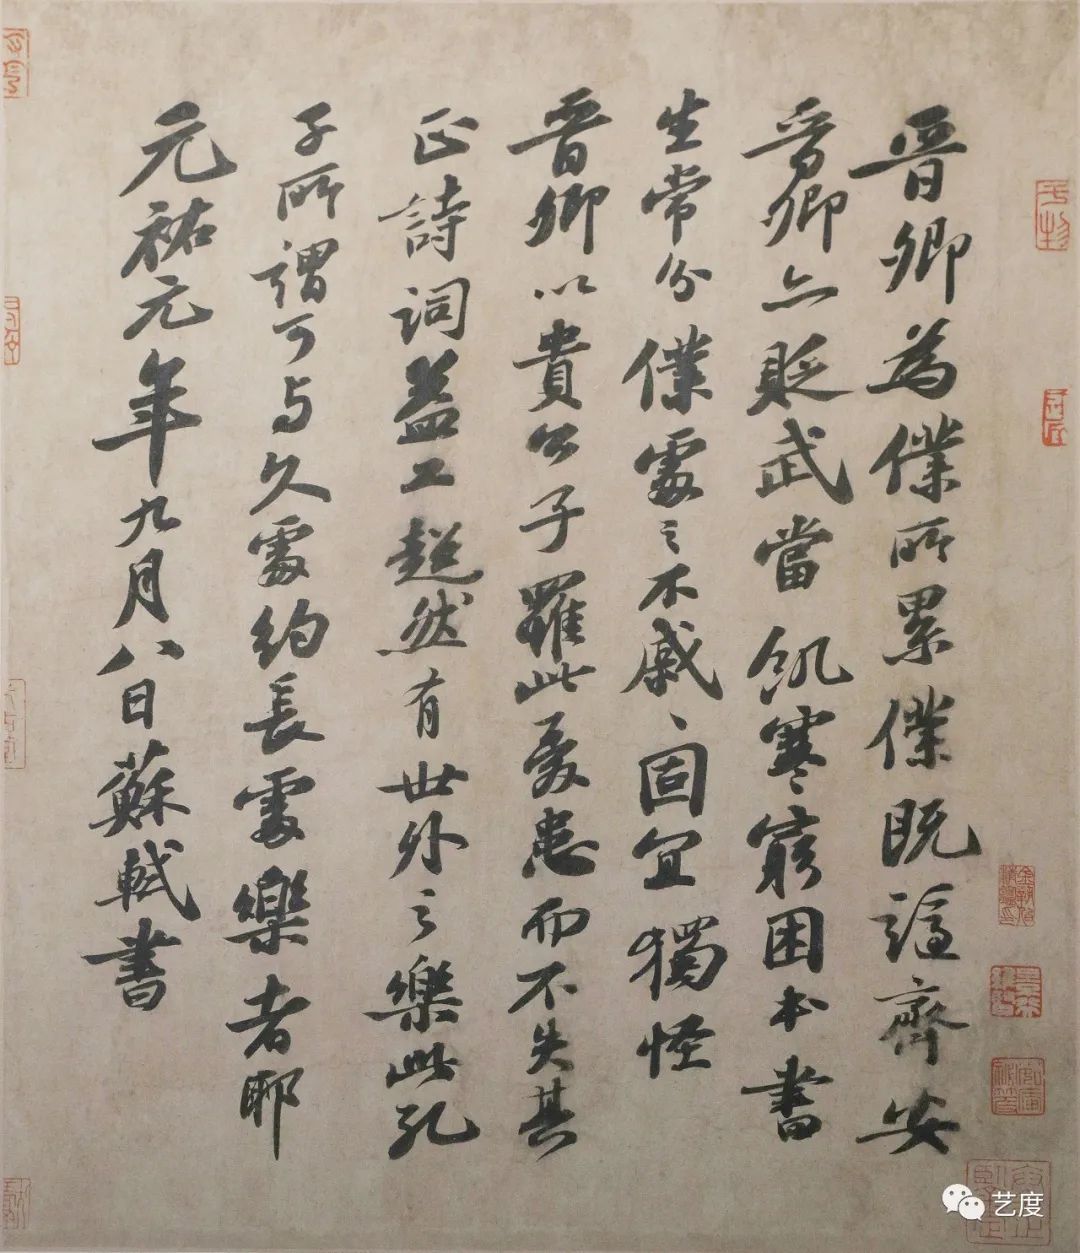 晉卿為僕所累僕既謫齊安
晉卿亦貶武當飢寒窮困本書
生常分僕處之不戚戚固宜獨怪
晉卿以貴公子罹此憂患而不失其
正詩詞益工超然有世外之樂此孔
子所謂可与久處約長處樂者耶
元祐元年九月八日蘇軾書
艺度